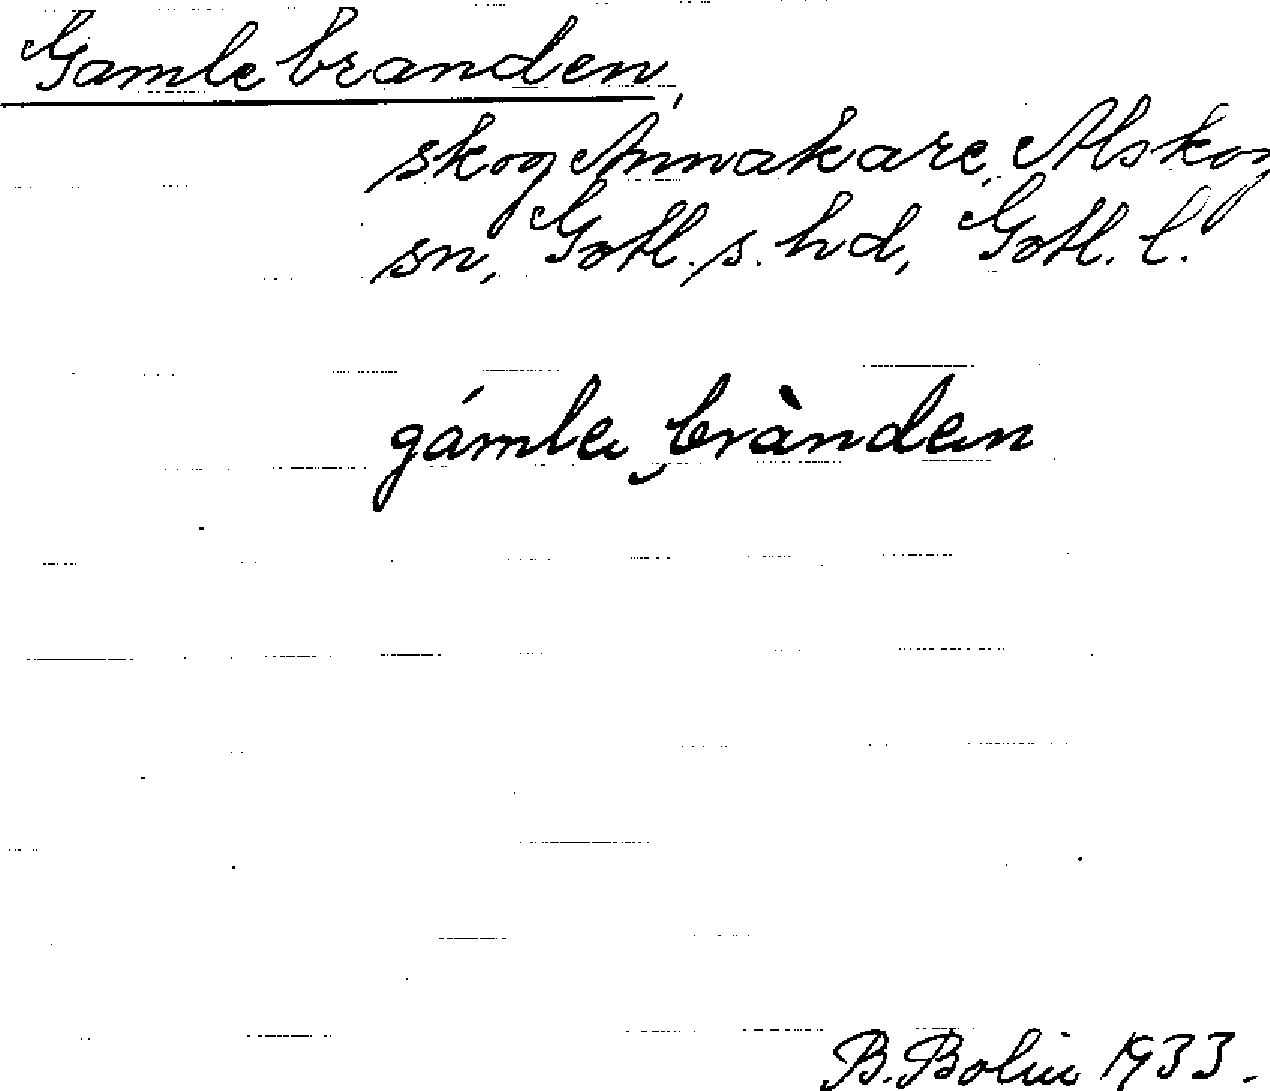 Gamle branden,
skog Annakare, Alskog
sn, Gotl. s. hd, Gotl. l.
gámla brànden
B. Bolin 1933.